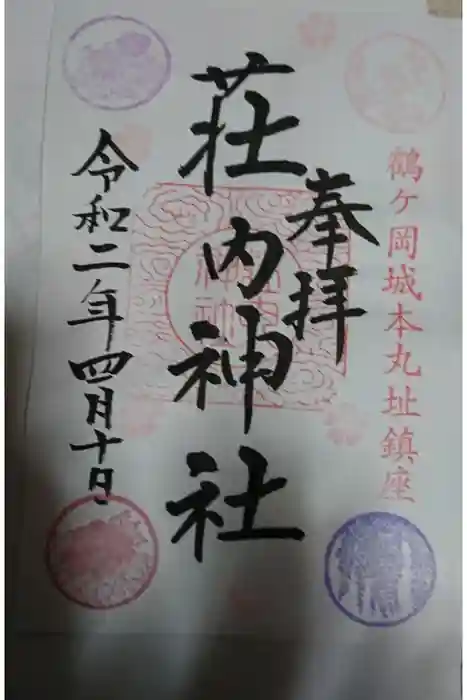 鶴ケ岡城本丸址鎮座
奉拝
荘内神社
令和二年四月十日